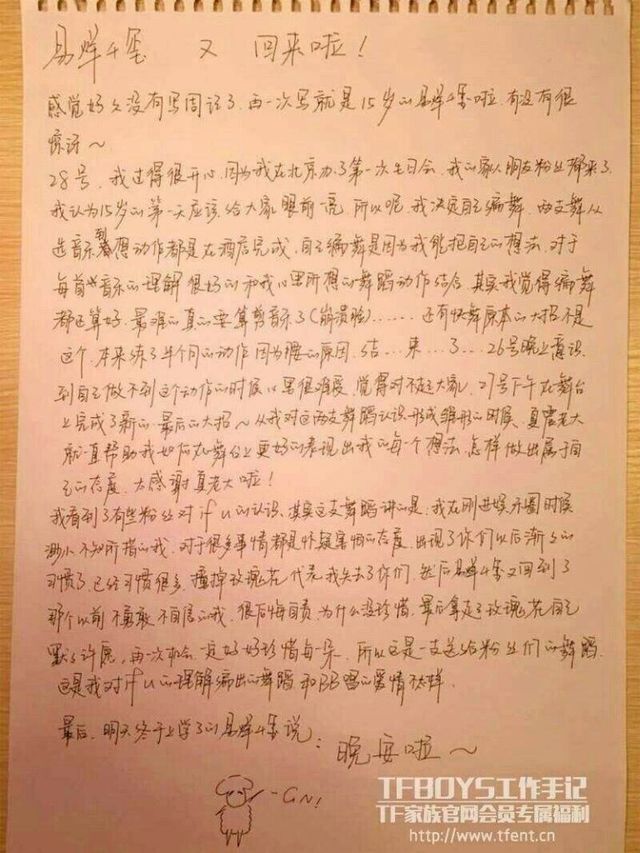 易烊千玺 又 回来啦！
感觉好久没有写周记了，再一次写就是15岁的易烊千玺啦，有没有很
惊讶～
28号，我过得很开心，因为我在北京办了第一次生日会，我的家人朋友粉丝都来了，
我认为15岁的第一天应该给大家眼前一亮，所以呢，我决定自己编舞，两支舞从
选音乐到想动作都是在酒店完成，自己编舞是因为我能把自己的想法，对于
每首音乐的理解很好的和我心里所想的舞蹈动作结合，其实我觉得编舞
都还算好，最难的真的要算剪音乐了（崩溃脸）……还有快舞原本的大招不是
这个，本来练了半个月的动作因为腰的原因，结…束…了…26号晚上意识
到自己做不到这个动作的时候心里很难受，觉得对不起大家，27号下午在舞台
上完成了新的，最后的大招～从我对这两支舞蹈认识形成雏形的时候，夏雲老大
就一直帮助我如何在舞台上更好的表现出我的每一个想法，怎样做出属于自
己的态度，太感谢夏老大啦！
我看到了有些粉丝对if u的认识，其实这支舞蹈讲的是：我在刚进娱乐圈时候
渺小不知所措的我，对于很多事情都是怀疑害怕的态度，出现了你们以后渐渐的
习惯了，已经习惯很多，撞掉玫瑰花代表我失去了你们，然后易烊千玺又回到了
那个以前不勇敢不自信的我，很后悔自责，为什么没珍惜，最后拿起了玫瑰花自己
默默许愿，再一次机会一定好好珍惜每一朵，所以这是一支送给粉丝们的舞蹈，
这是我对if u的理解编出的舞蹈和BB唱的爱情not样，
最后，明天终于上学了的易烊千玺说：晚安啦～
-GN！
TFBOYS工作手记
TF家族官网会员专属福利
http://www.tfent.cn